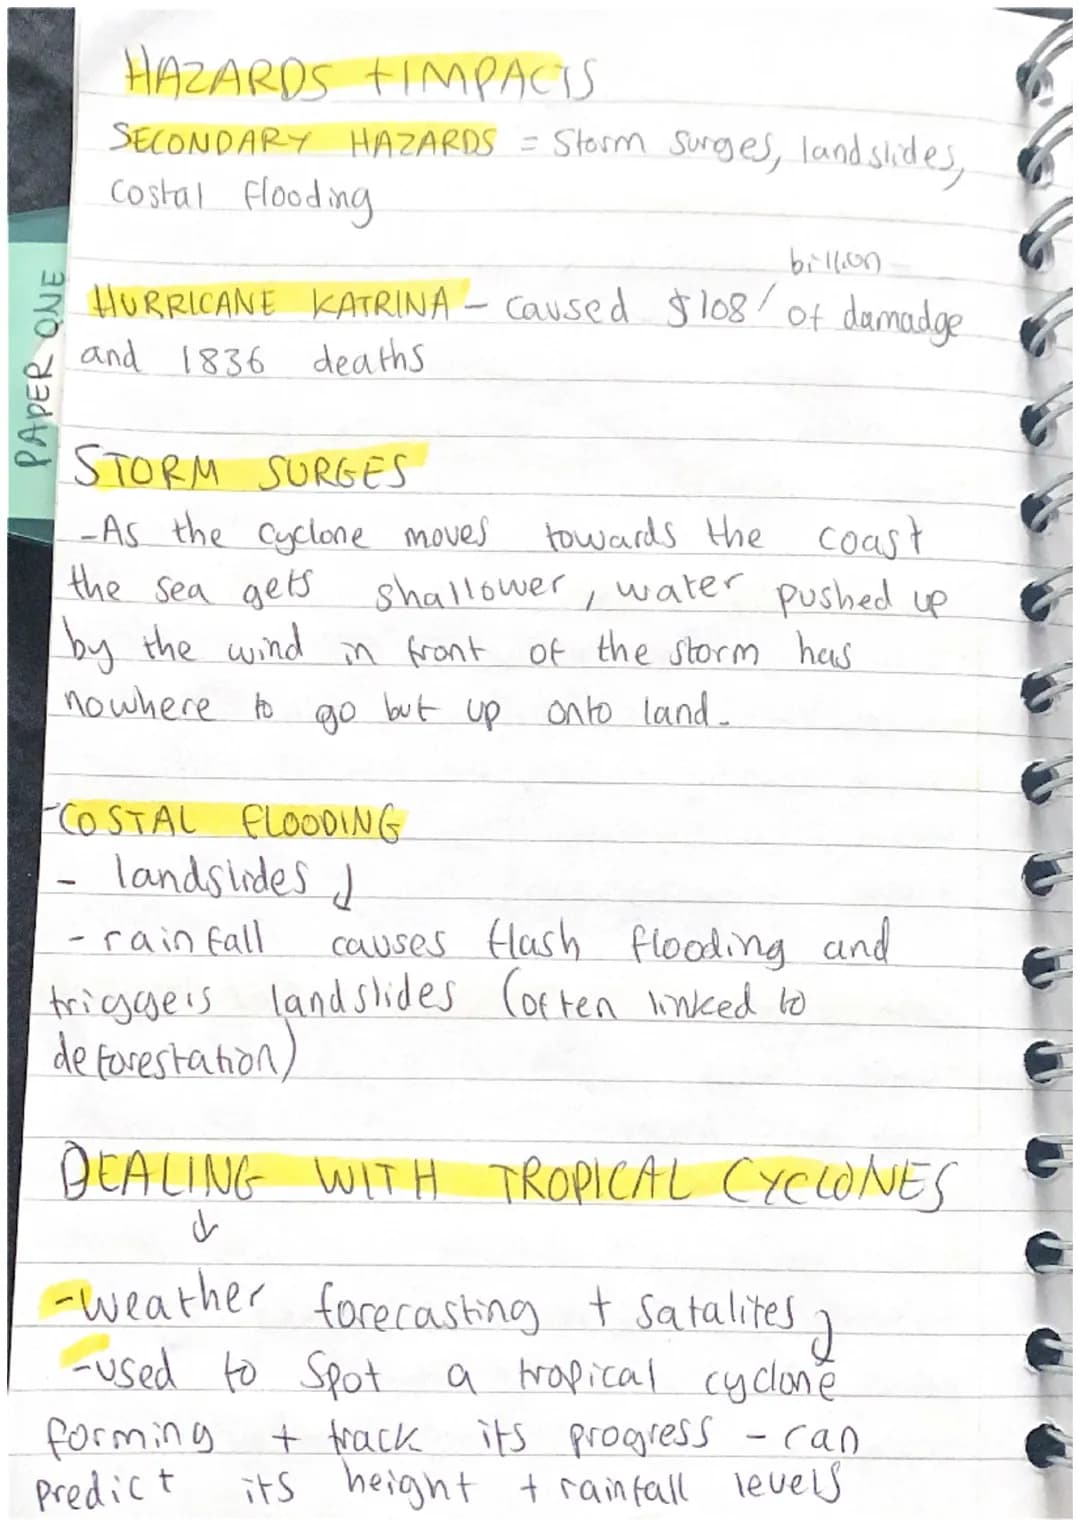 HAZARDS + IMPACTS
SECONDARY HAZARDS = Storm surges, landslides,
costal flooding
billion
HURRICANE KATRINA - caused $108 / of damadge
and 1836 deaths
PAPER ONE
STORM SURGES
- As the cyclone moves towards the coast
the sea gets shallower, water pushed up
by the wind in front of the storm has
nowhere to go but up onto land.
- COSTAL FLOODING
- landslides ↓
- rainfall causes flash flooding and
triggers landslides (often linked to
deforestation)
DEALING WITH TROPICAL CYCLONES
↓
- weather forecasting + satalites ↓
- used to spot a tropical cyclone
forming + track its progress - can
predict its height + rainfall levels